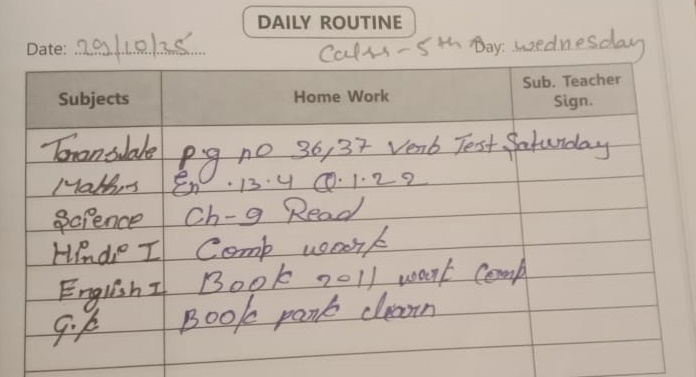 DAILY ROUTINE
Date: 29/10/25 Calss - 5th Day: wednesday
Subjects Home Work Sub. Teacher Sign.
Transulate pg no 36,37 Verb Test Saturday
Maths En .13.4 Q.1.22
Science Ch-9 Read
Hindi I Comp work
English I Book work Comp
G.K Book park